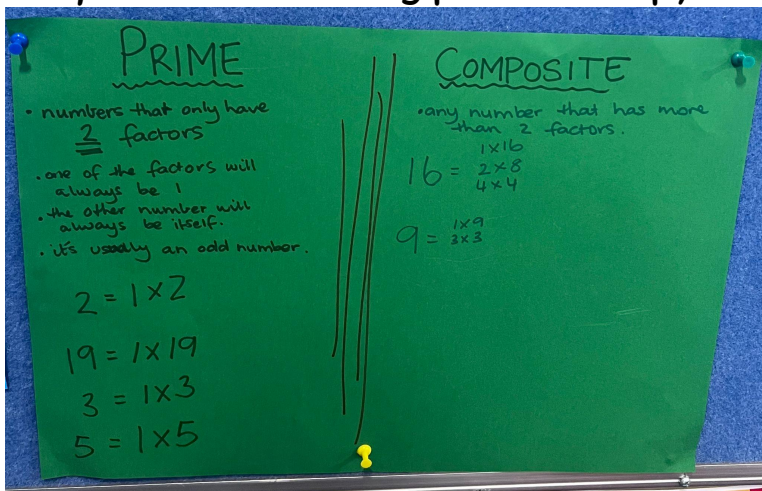 PRIME
• numbers that only have
2 factors
• one of the factors will
always be 1
• the other number will
always be itself.
• it's usually an odd number.
2 = 1x2
19 = 1x19
3 = 1x3
5 = 1x5
COMPOSITE
• any number that has more
than 2 factors.
1x16
16 = 2x8
4x4
1x9
9 = 3x3